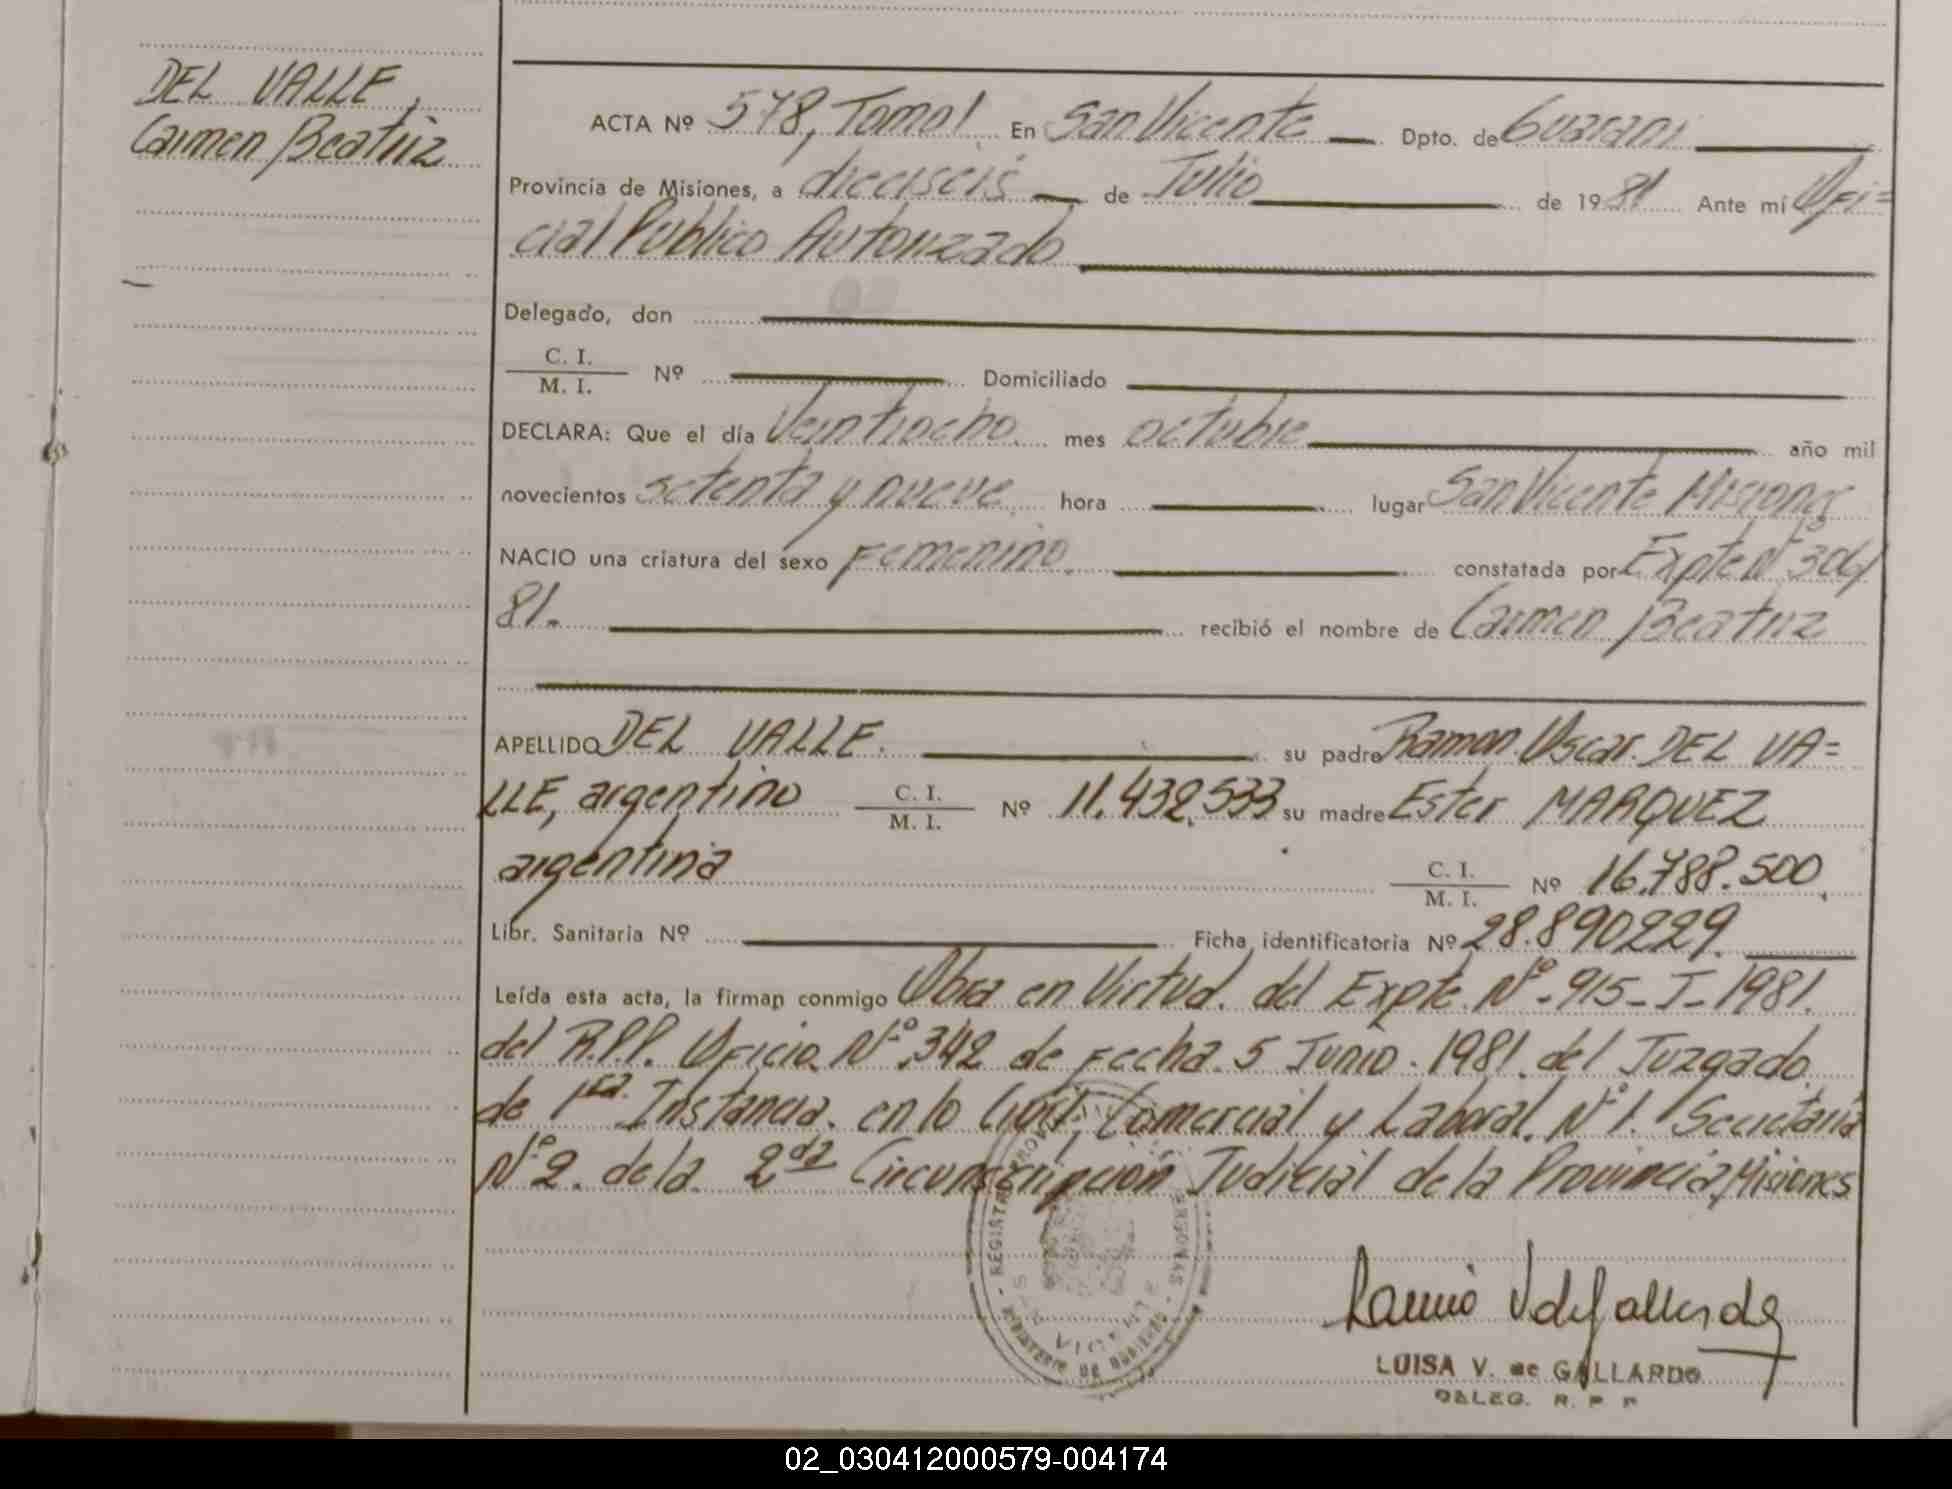 DEL VALLE,
Carmen Beatriz
ACTA Nº 578, Tomo I En San Vicente Dpto. de Guarani
Provincia de Misiones, a dieciseis de Julio de 1981 Ante mí Ofi=
cial Publico Autorizado
Delegado, don
C. I.
M. I. Nº Domiciliado
DECLARA: Que el día Veintiocho mes octubre año mil
novecientos setenta y nueve hora lugar San Vicente Misiones
NACIO una criatura del sexo Femenino constatada por Expte Nº 306/
81. recibió el nombre de Carmen Beatriz
APELLIDO DEL VALLE. su padre Ramon Oscar DEL VA=
LLE, argentino C. I. / M. I. Nº 11.432.533 su madre Ester MARQUEZ
argentina C. I. / M. I. Nº 16.788.500.
Libr. Sanitaria Nº Ficha identificatoria Nº 28.890229.
Leída esta acta, la firman conmigo Obra en Virtud. del Expte. Nº-915-I-1981.
del R.P.P. Oficio Nº 342 de Fecha 5 Junio. 1981. del Juzgado
de 1ra. Instancia. en lo Civil, Comercial y Laboral. Nº 1. Secretaria
Nº 2. de la 2da Circunscripción Judicial de la Provincia Misiones
REGISTRO PROV. PERSONAS
MINISTERIO DE GOBIERNO
LUISA V. de GALLARDO
DELEG. R. P. P.
02_030412000579-004174